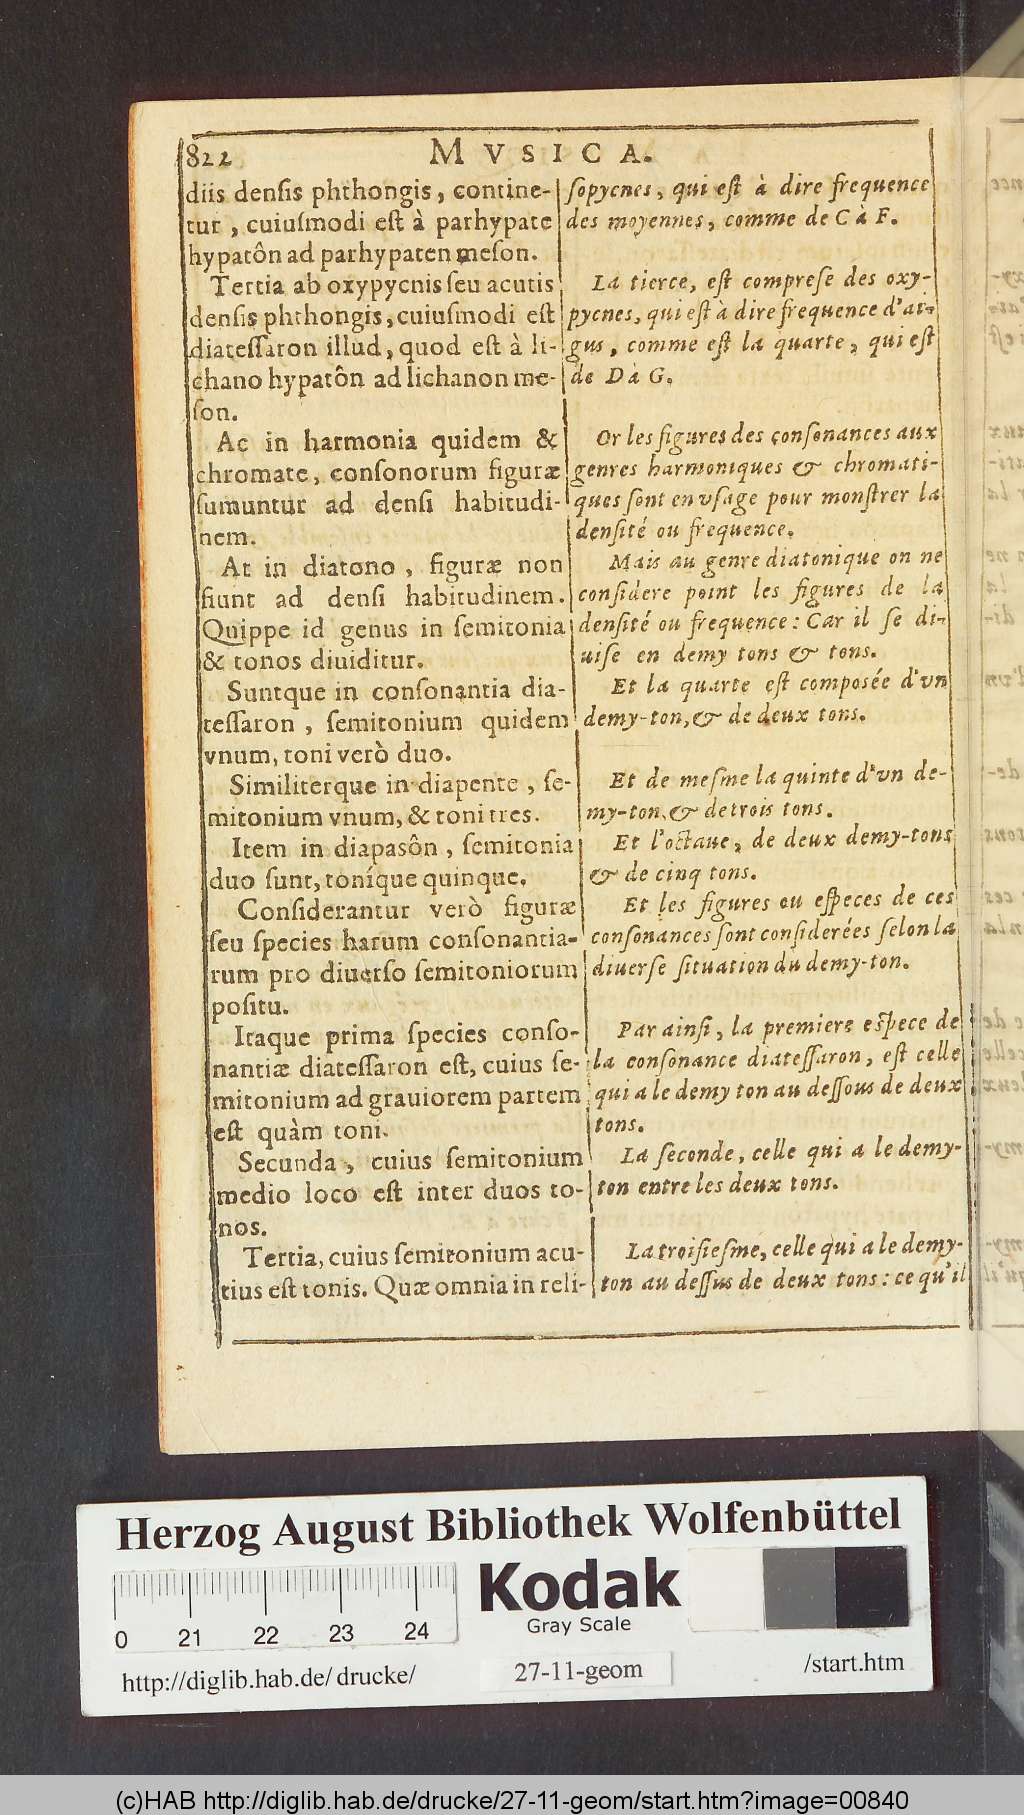 822
MVSICA.
diis densis phthongis, contine-
tur, cuiusmodi est à parhypate
hypatôn ad parhypaten meson.
Tertia ab oxypycnis seu acutis
densis phthongis, cuiusmodi est
diatessaron illud, quod est à li-
chano hypatôn ad lichanon me-
son.
Ac in harmonia quidem &
chromate, consonorum figuræ
sumuntur ad densi habitudi-
nem.
At in diatono, figuræ non
fiunt ad densi habitudinem.
Quippe id genus in semitonia
& tonos diuiditur.
Suntque in consonantia dia-
tessaron, semitonium quidem
vnum, toni verò duo.
Similiterque in diapente, se-
mitonium vnum, & toni tres.
Item in diapasôn, semitonia
duo sunt, toníque quinque.
Considerantur verò figuræ
seu species harum consonantia-
rum pro diuerso semitoniorum
positu.
Itaque prima species conso-
nantiæ diatessaron est, cuius se-
mitonium ad grauiorem partem
est quàm toni.
Secunda, cuius semitonium
medio loco est inter duos to-
nos.
Tertia, cuius semitonium acu-
tius est tonis. Quæ omnia in reli-
sopycnes, qui est à dire frequence
des moyennes, comme de C à F.
La tierce, est comprese des oxy-
pycnes, qui est à dire frequence d'ar-
gus, comme est la quarte, qui est
de D à G.
Or les figures des consonances aux
genres harmoniques & chromati-
ques sont en vsage pour monstrer la
densité ou frequence.
Mais au genre diatonique on ne
considere point les figures de la
densité ou frequence: Car il se di-
uise en demy tons & tons.
Et la quarte est composée d'vn
demy-ton, & de deux tons.
Et de mesme la quinte d'vn de-
my-ton, & de trois tons.
Et l'octaue, de deux demy-tons
& de cinq tons.
Et les figures ou especes de ces
consonances sont considerées selon la
diuerse situation du demy-ton.
Par ainsi, la premiere espece de
la consonance diatessaron, est celle
qui a le demy ton au dessous de deux
tons.
La seconde, celle qui a le demy-
ton entre les deux tons.
La troisiesme, celle qui a le demy-
ton au dessus de deux tons: ce qu'il
Herzog August Bibliothek Wolfenbüttel
Kodak
Gray Scale
0 21 22 23 24
http://diglib.hab.de/drucke/
27-11-geom
/start.htm
(c)HAB http://diglib.hab.de/drucke/27-11-geom/start.htm?image=00840